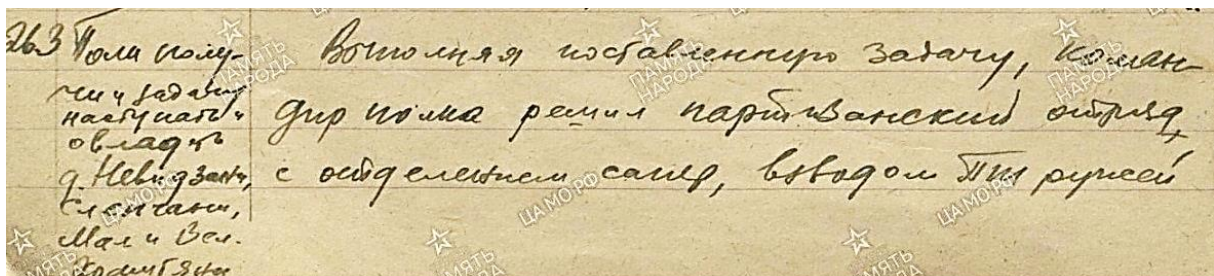 26.3 Полк полу-
чил задачу
наступать и
овладеть
д. Невидзяни,
Слопчани,
Мал и Вел.
Выполняя поставленную задачу, коман-
дир полка решил партизанский отряд,
с отделением сапер, взводом ПТ ружей
ПАМЯТЬ НАРОДА
ЦАМО.РФ